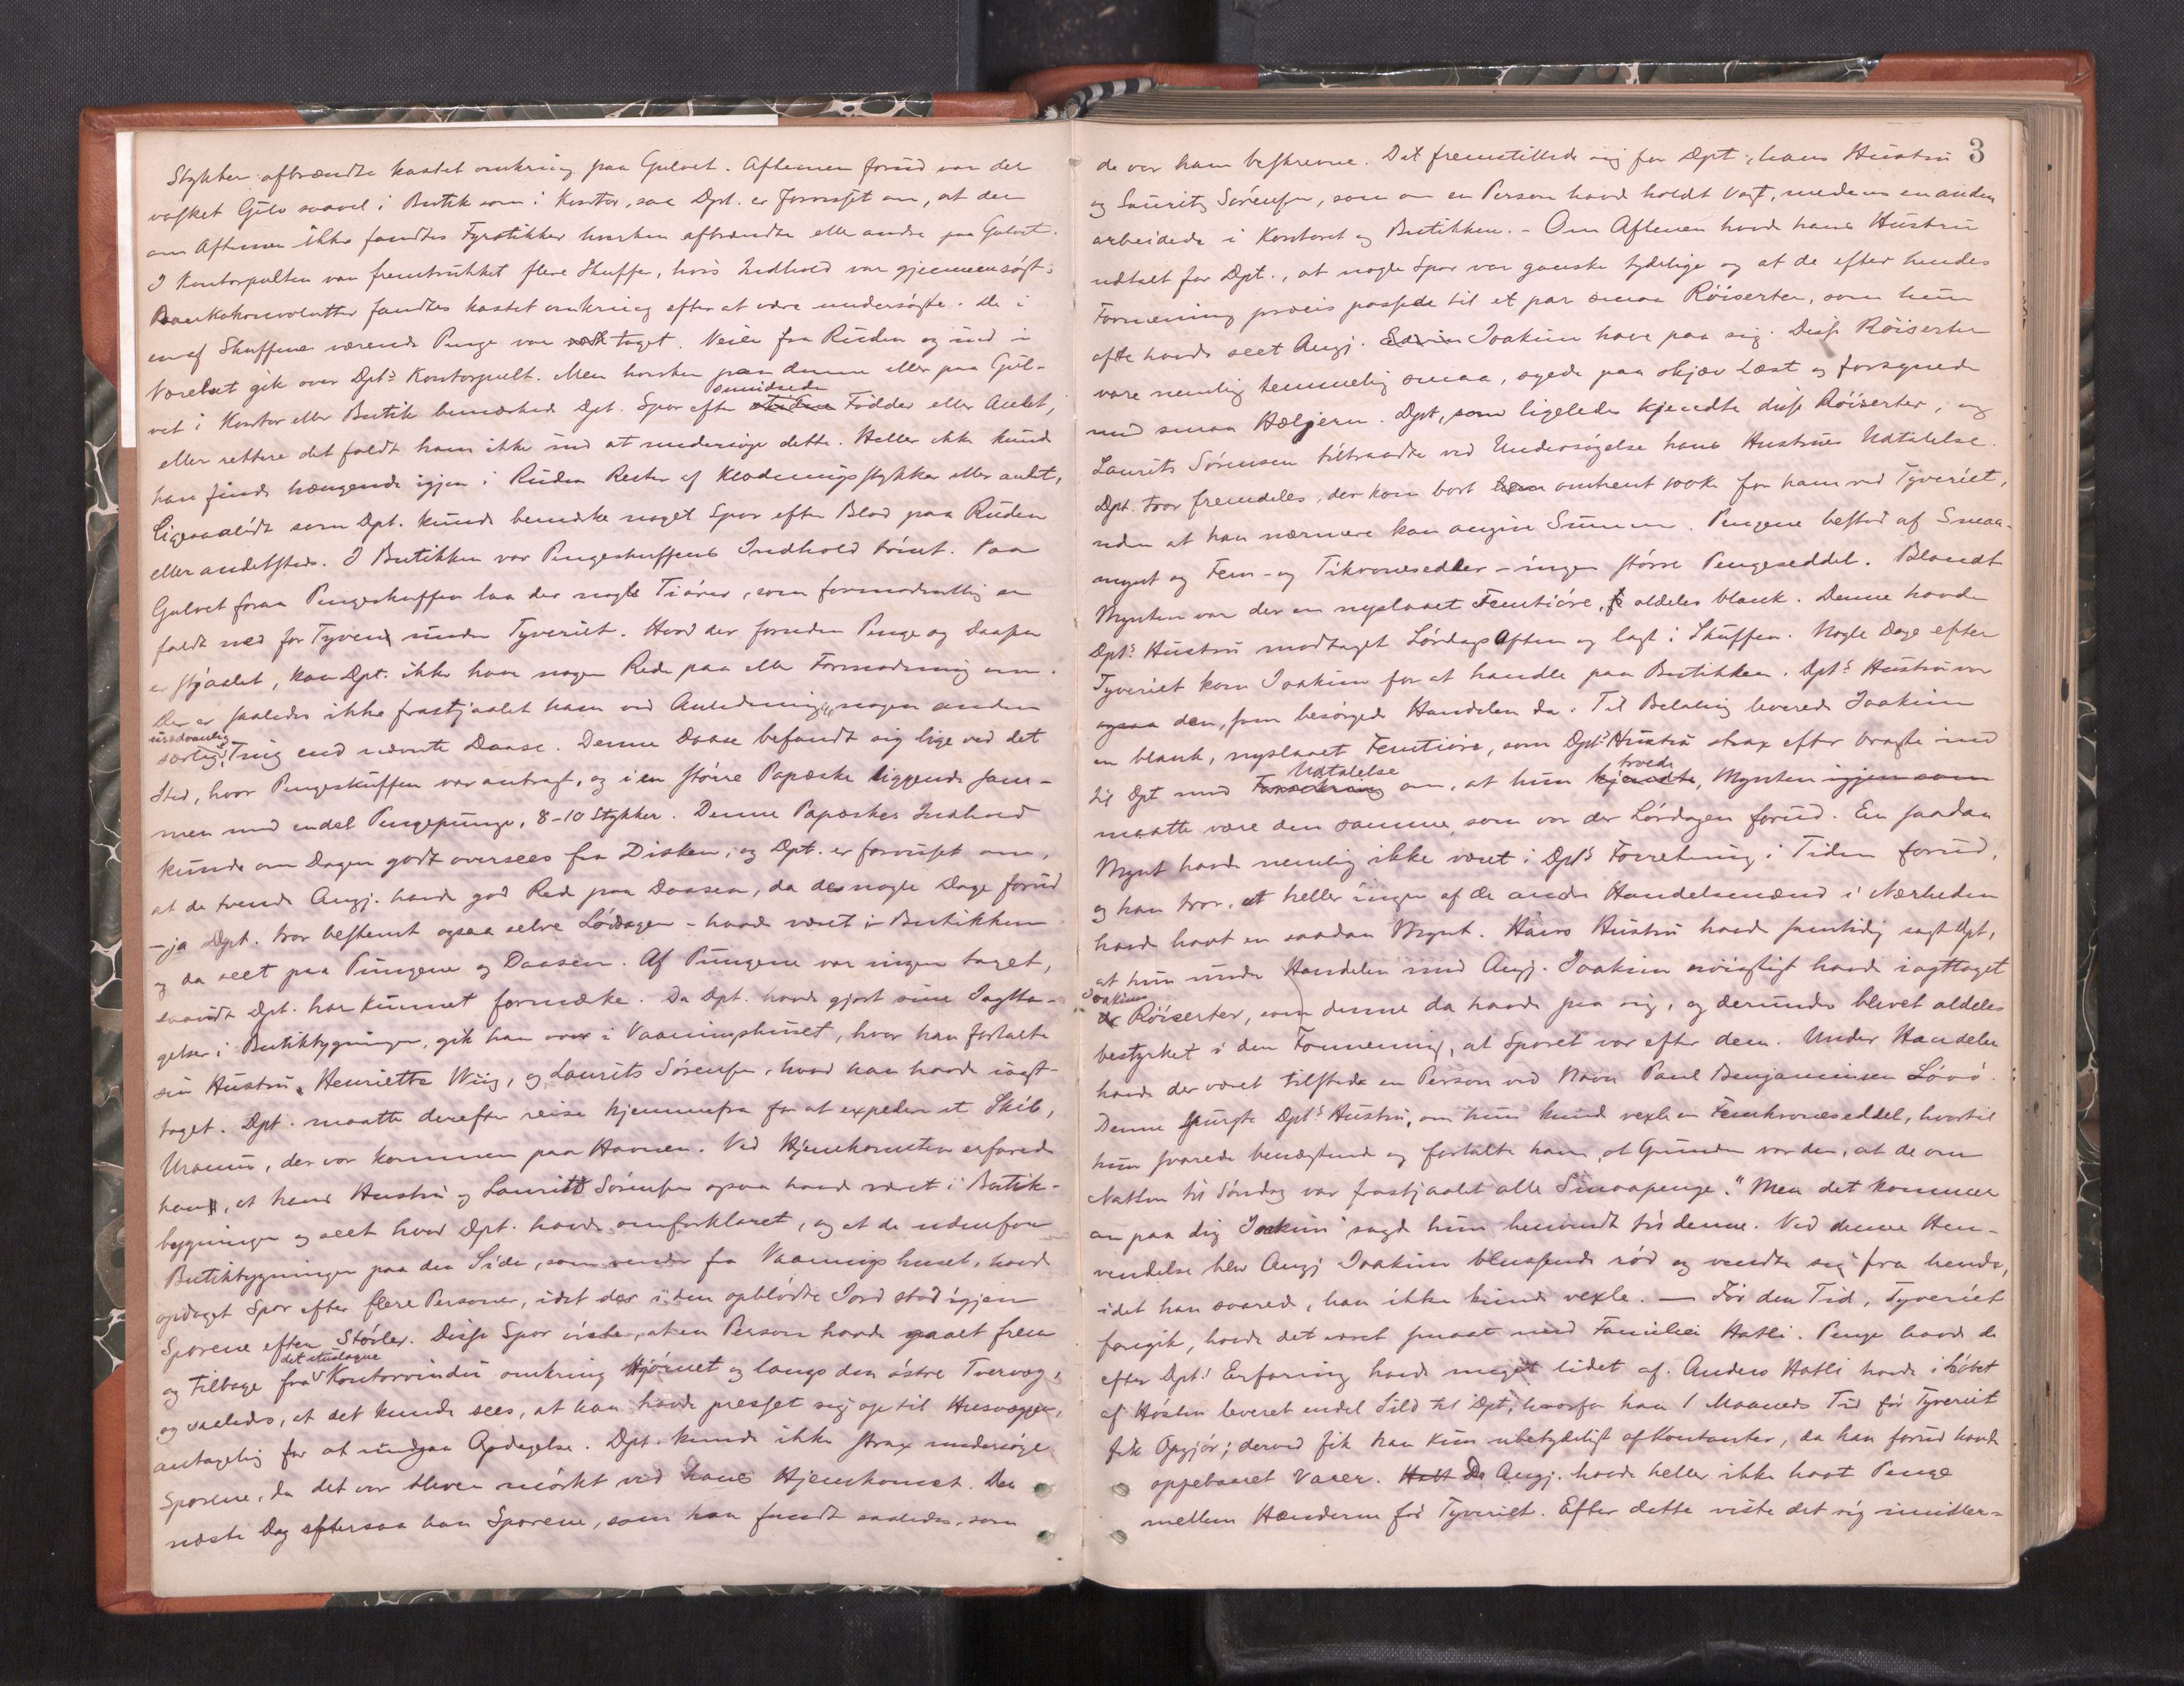 Stykker afbrændte kastet omkring paa Gulvet. Aftenen forud var der
vasket Gulv saavel i Butik som i Kontor, saa Dpt. er forvisset om, at der
om Aftenen ikke fandtes Fyrstikker hverken afbrændte elle andre paa Gulvet.
I Kontorpulten var fremtrukket flere Skuffe, hvis Indhold var gjennemsøgt;
Bankokonvolutter fandtes kastet omkring efter at være undersøgte. De i
en af Skuffene værende Penge var taget. Veien fra Ruden og ind i
Værelset gik over Dpts Kontorpult. Men hverken paa denne eller paa Gul-
vet i Kontor eller Butik bemærked Dpt. Spor efter smudsede Fødder eller Andet,
eller rettere det faldt ham ikke ind at undersøge dette. Heller ikke kund
han finde hængende igjen i Ruden Rester af Klædningsstykker eller andet,
ligesaalidt som Dpt. kunde bemærke noget Spor efter Blod paa Ruden
eller andetsteds. I Butikken var Pengeskuffens Indhold tømt. Paa
Gulvet foran Pengeskuffen laa der nogle Tiører, som formodentlig er
faldt ned for Tyven under Tyveriet. Hvad der foruden Penge og Daasen
er stjaalet, kan Dpt. ikke have nogen Rede paa elle Formodning om.
Der er saaledes ikke frastjaalet ham ved Anledningen nogen anden
særlig, usædvanlig Ting end nævnte Daase. Denne Daase befandt sig lige ved det
Sted, hvor Pengeskuffen var anbragt, og i en større Papæske liggende sam-
men med endel Pengepunge, 8-10 Stykker. Denne Papæskes Indhold
kunde om Dagen godt oversees fra Disken, og Dpt. er forvisset om,
at de tvende Angj. havde god Rede paa Daasen, da de nogle Dage forud
- ja Dpt. tror bestemt ogsaa selve Lørdagen - havde været i Butikken
og da seet paa Pungene og Daasen. Af Pungene var ingen taget,
saavidt Dpt. har kunnet formærke. Da Dpt. havde gjort sine Iagtta-
gelser i Butikbygningen, gik han over i Vaaningshuset, hvor han fortalte
sin Hustru, Henriette Wiig, og Laurits Sørensen, hvad han havde iagt-
taget. Dpt. maatte derefter reise hjemmefra for at expedere et Skib,
Uranus, der var kommen paa Havnen. Ved Hjemkomsten erfarede
han, at hans Hustru og Laurits Sørensen ogsaa havde været i Butik-
bygningen og seet hvad Dpt. havde omforklaret, og at de udenfor
Butikbygningen paa den Side, som vender fra Vaaningshuset, havde
opdaget Spor efter flere Personer, idet der i den opblødte Jord stod igjen
Sporene efter Støvler. Disse Spor viste, at en Person havde gaaet frem
og tilbage fra det utuslagne Kontorvindu omkring Hjørnet og langs den østre Tvervæg,
og saaledes, at det kunde sees, at han havde presset sig op til Husvæggen,
antagelig for at undgaa Opdagelse. Dpt. kunde ikke strax undersøge
Sporene, da det var bleven mørkt ved hans Hjemkomst. Den
næste Dag eftersaa han Sporene, som han fandt saaledes, som
3
de var ham beskrevne. Det fremstillede sig for Dpt., hans Hustru
og Laurits Sørensen, som om en Person havde holdt Vagt, medens en anden
arbeidede i Kontoret og Butikken. - Om Aftenen havde hans Hustru
udtalt for Dpt., at nogle Spor var ganske tydelige og at de efter hendes
Formening præcis passede til et par smaa Røiserter, som hun
ofte havde seet Angj. Joakim have paa sig. Disse Røiserter
vare nemlig temmelig smaa, syede paa skjæv Læst og forsynede
med smaa Hæljern. Dpt, som ligeledes kjendte disse Røiserter, og
Laurits Sørensen tiltraadte ved Undersøgelse hans Hustrues Udtalelse.
Dpt. tror fremdeles, der kom bort omtrent 100 K. for ham ved Tyveriet,
uden at han nærmere kan angive Summen. Pengene bestod af Smaa-
mynt og Fem- og Tikronesedler - ingen større Pengeseddel. Blandt
Mynten var der en nyslaaet Femtiøre, aldeles blank. Denne havde
Dpts Hustru modtaget Lørdags Aften og lagt i Skuffen. Nogle Dage efter
Tyveriet kom Joakim for at handle paa Butikken. Dpts Hustru var
ogsaa den, som besørgede Handelen da. Til Betaling leverede Joakim
en blank, nyslaaet Femtiøre, som Dpts Hustru strax efter bragte ind
til Dpt med Udtalelse om, at hun troede, Mynten igjen som
maatte være den samme, som var der Lørdagen forud. En saadan
Mynt havde nemlig ikke været i Dpts Forretning i Tiden forud,
og han tror, at heller ingen af de andre Handelsmænd i Nærheden
havde havt en saadan Mynt. Hans Hustru havde samtidig sagt Dpt,
at hun under Handelen med Angj. Joakim nøiagtigt havde iagttaget
Joakims Røiserter, som denne da havde paa sig, og derunder blevet aldeles
bestyrket i den Formening, at Sporet var efter dem. Under Handelen
havde der været tilstede en Person ved Navn Paul Benjaminsen Løvø.
Denne spurgte Dpts Hustru, om hun kunde vexle en Femkroneseddel, hvortil
hun svarede benægtende og fortalte ham, at Grunden var den, at de om
Natten til Søndag var frastjaalet alle Smaapenge. "Men det kommer
an paa dig Joakim" sagde hun henvendt til denne. Ved denne Hen-
vendelse blev Angj Joakim blussende rød og vendte sig fra hende,
idet han svarede, han ikke kunde vexle. - Før den Tid, Tyveriet
foregik, havde det været smaat med Familien Hatli. Penge havde de
efter Dpts Erfaring havde meget lidet af. Anders Hatli havde i Løbet
af Høsten leveret endel Sild til Dpt, hvorfor han 1 Maaneds Tid før Tyveriet
fik Opgjør; derved fik han kun ubetydeligt af Kontanter, da han forud havde
oppebaaret Varer. De Angj. havde heller ikke havt Penge
mellem Hænderne før Tyveriet. Efter dette viste det sig imidler-